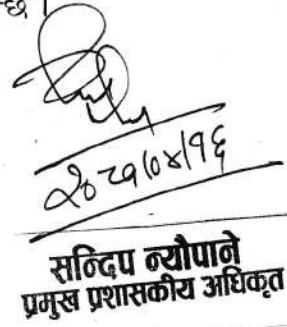 छ ।
२०८१/०४/१६
सन्दिप न्यौपाने
प्रमुख प्रशासकीय अधिकृत